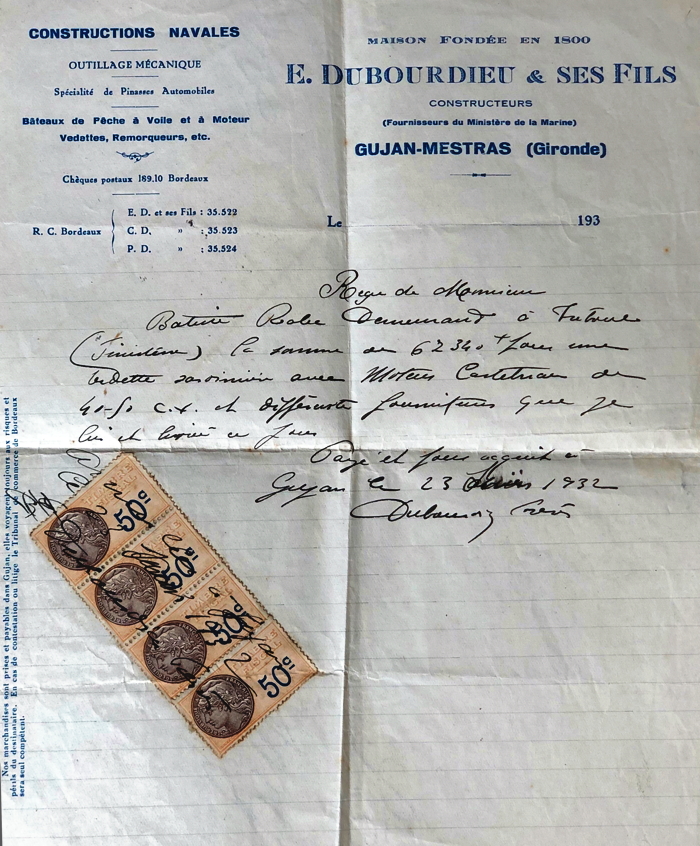 CONSTRUCTIONS NAVALES
OUTILLAGE MÉCANIQUE
Spécialité de Pinasses Automobiles
Bâteaux de Pêche à Voile et à Moteur
Vedettes, Remorqueurs, etc.
Chèques postaux 189.10 Bordeaux
R. C. Bordeaux
E. D. et ses Fils : 35.522
C. D. » : 35.523
P. D. » : 35.524
MAISON FONDÉE EN 1800
E. DUBOURDIEU & SES FILS
CONSTRUCTEURS
(Fournisseurs du Ministère de la Marine)
GUJAN-MESTRAS (Gironde)
Le 193
Reçu de Monsieur
à
(Finistère) la somme de pour une
Vedette avec Moteur de
40-50 c.v. et différents que je
lui et ce jour
Payé et pour acquit à
Gujan le 23 1932
50c
50c
50c
50c
Nos marchandises sont prises et payables dans Gujan, elles voyagent toujours aux risques et
périls du destinataire. En cas de contestation ou litige le Tribunal de commerce de Bordeaux
sera seul compétent.